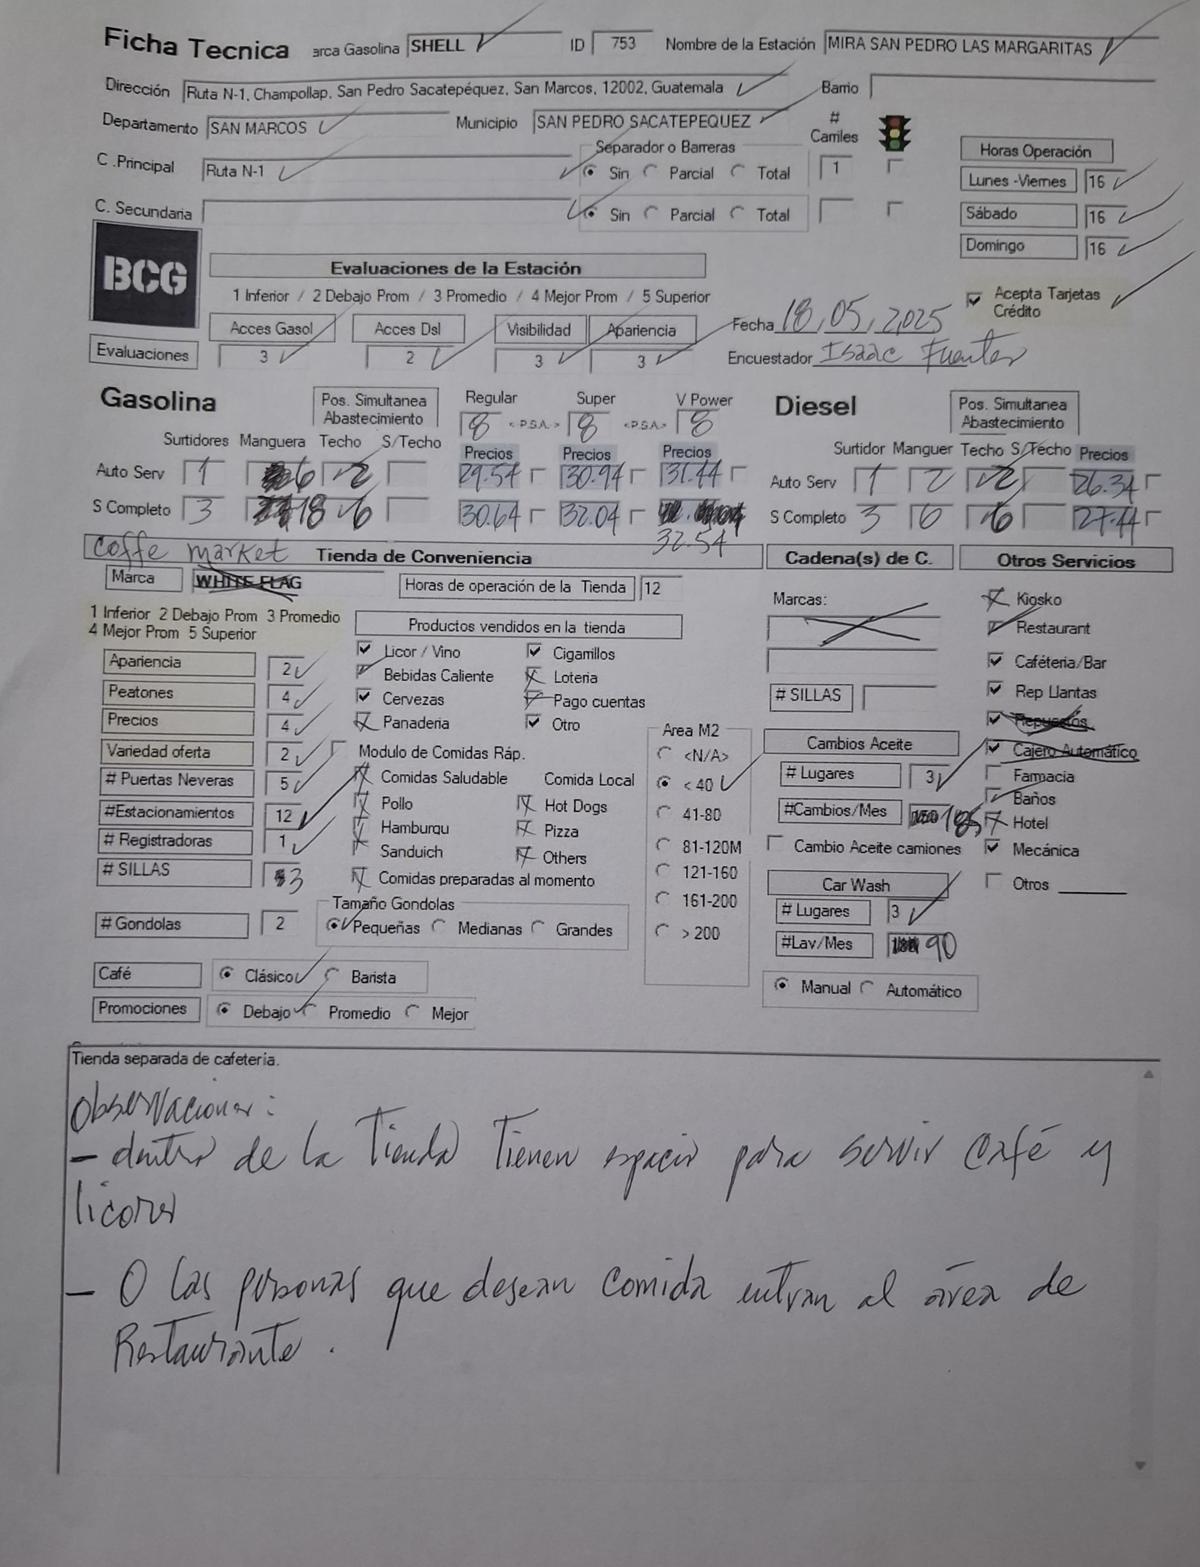 Ficha Tecnica arca Gasolina SHELL ID 753 Nombre de la Estación MIRA SAN PEDRO LAS MARGARITAS
Dirección Ruta N-1, Champollap, San Pedro Sacatepéquez, San Marcos, 12002, Guatemala Barrio
Departamento SAN MARCOS Municipio SAN PEDRO SACATEPEQUEZ # Carriles
C .Principal Ruta N-1 Separador o Barreras Sin Parcial Total 1
C. Secundaria Sin Parcial Total
Horas Operación
Lunes -Viernes 16
Sábado 16
Domingo 16
BCG
Evaluaciones de la Estación
1 Inferior / 2 Debajo Prom / 3 Promedio / 4 Mejor Prom / 5 Superior
Acepta Tarjetas Crédito
Acces Gasol Acces Dsl Visibilidad Apariencia
Evaluaciones 3 2 3 3
Fecha 18,05,2,025
Encuestador Isaac Fuentes
Gasolina Pos. Simultanea Abastecimiento Regular Super V Power
8 < P.S.A.> 8 <P.S.A.> 8
Surtidores Manguera Techo S/Techo Precios Precios Precios
Auto Serv 1 6 2 29.54 30.94 31.44
S Completo 3 18 6 30.64 32.04
32.54
Diesel Pos. Simultanea Abastecimiento
Surtidor Manguer Techo S/Techo Precios
Auto Serv 1 2 2 26.34
S Completo 3 6 6 27.44
coffe market Tienda de Conveniencia
Marca WHITE FLAG Horas de operación de la Tienda 12
1 Inferior 2 Debajo Prom 3 Promedio
4 Mejor Prom 5 Superior
Apariencia 2
Peatones 4
Precios 4
Variedad oferta 2
# Puertas Neveras 5
#Estacionamientos 12
# Registradoras 1
# SILLAS 3
# Gondolas 2
Productos vendidos en la tienda
Licor / Vino Cigarrillos
Bebidas Caliente Loteria
Cervezas Pago cuentas
Panaderia Otro
Modulo de Comidas Ráp.
Comidas Saludable Comida Local
Pollo Hot Dogs
Hamburqu Pizza
Sanduich Others
Comidas preparadas al momento
Tamaño Gondolas
Pequeñas Medianas Grandes
Café Clásico Barista
Promociones Debajo Promedio Mejor
Area M2
<N/A>
< 40
41-80
81-120M
121-160
161-200
> 200
Cadena(s) de C.
Marcas:
# SILLAS
Cambios Aceite
# Lugares 3
#Cambios/Mes 185
Cambio Aceite camiones
Car Wash
# Lugares 3
#Lav/Mes 90
Manual Automático
Otros Servicios
Kiosko
Restaurant
Caféteria/Bar
Rep Llantas
Repuestos
Cajero Automático
Farmacia
Baños
Hotel
Mecánica
Otros
Tienda separada de cafeteria.
Observaciones:
- dentro de la Tienda Tienen espacio para servir café y
licores
- O las personas que desean comida entran al área de
Restaurante.